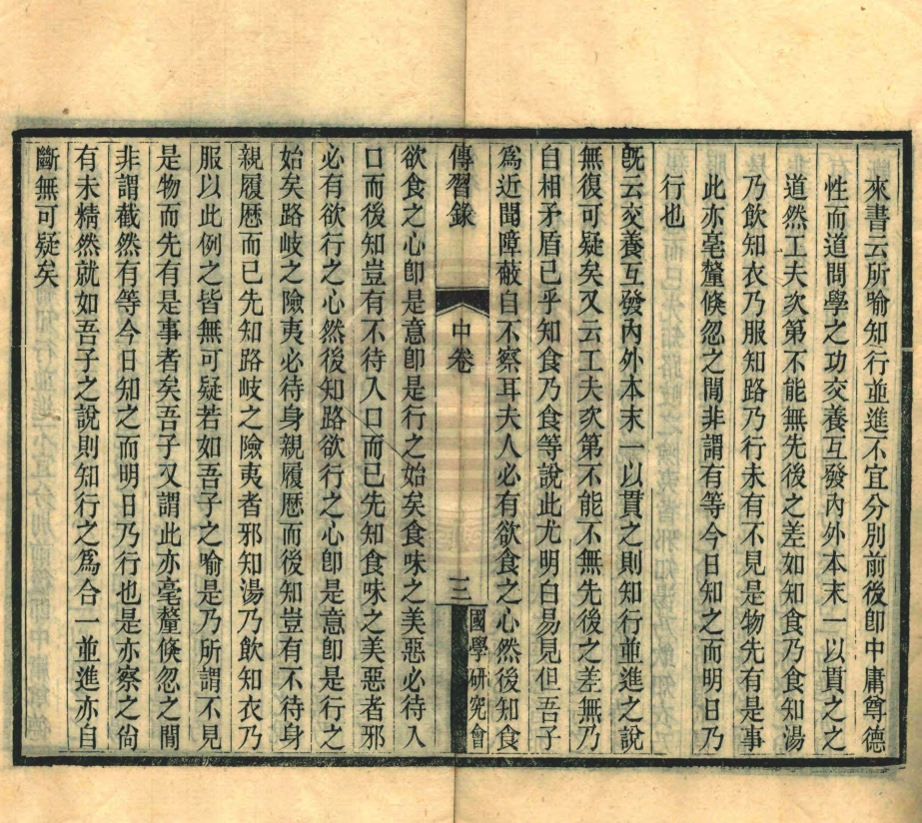 來書云所喻知行並進不宜分別前後卽中庸尊德
性而道問學之功交養互發內外本末一以貫之之
道然工夫次第不能無先後之差如知食乃食知湯
乃飮知衣乃服知路乃行未有不見是物先有是事
此亦毫釐倏忽之閒非謂有等今日知之而明日乃
行也
旣云交養互發內外本末一以貫之則知行並進之說
無復可疑矣又云工夫次第不能不無先後之差無乃
自相矛盾已乎知食乃食等說此尤明白易見但吾子
爲近聞障蔽自不察耳夫人必有欲食之心然後知食
傳習錄 中卷 三 國學研究會
欲食之心卽是意卽是行之始矣食味之美惡必待入
口而後知豈有不待入口而已先知食味之美惡者邪
必有欲行之心然後知路欲行之心卽是意卽是行之
始矣路岐之險夷必待身親履歷而後知豈有不待身
親履歷而已先知路岐之險夷者邪知湯乃飮知衣乃
服以此例之皆無可疑若如吾子之喻是乃所謂不見
是物而先有是事者矣吾子又謂此亦毫釐倏忽之閒
非謂截然有等今日知之而明日乃行也是亦察之尙
有未精然就如吾子之說則知行之爲合一並進亦自
斷無可疑矣